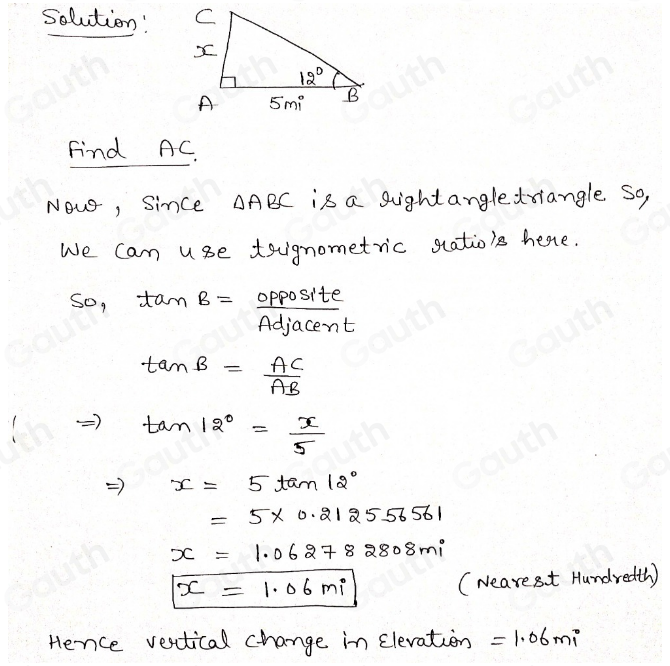 Solution:
C
x
12°
A
5mi
B
Find AC.
Now, Since ΔABC is a rightangletriangle So,
We can use trignometric ratio's here.
So, tan B = opposite / Adjacent
tan B = AC / AB
=> tan 12° = x / 5
=> x = 5 tan 12°
= 5 × 0.212556561
x = 1.062782808mi
x = 1.06 mi (Nearest Hundredth)
Hence vertical change in Elevation = 1.06mi
Gauth